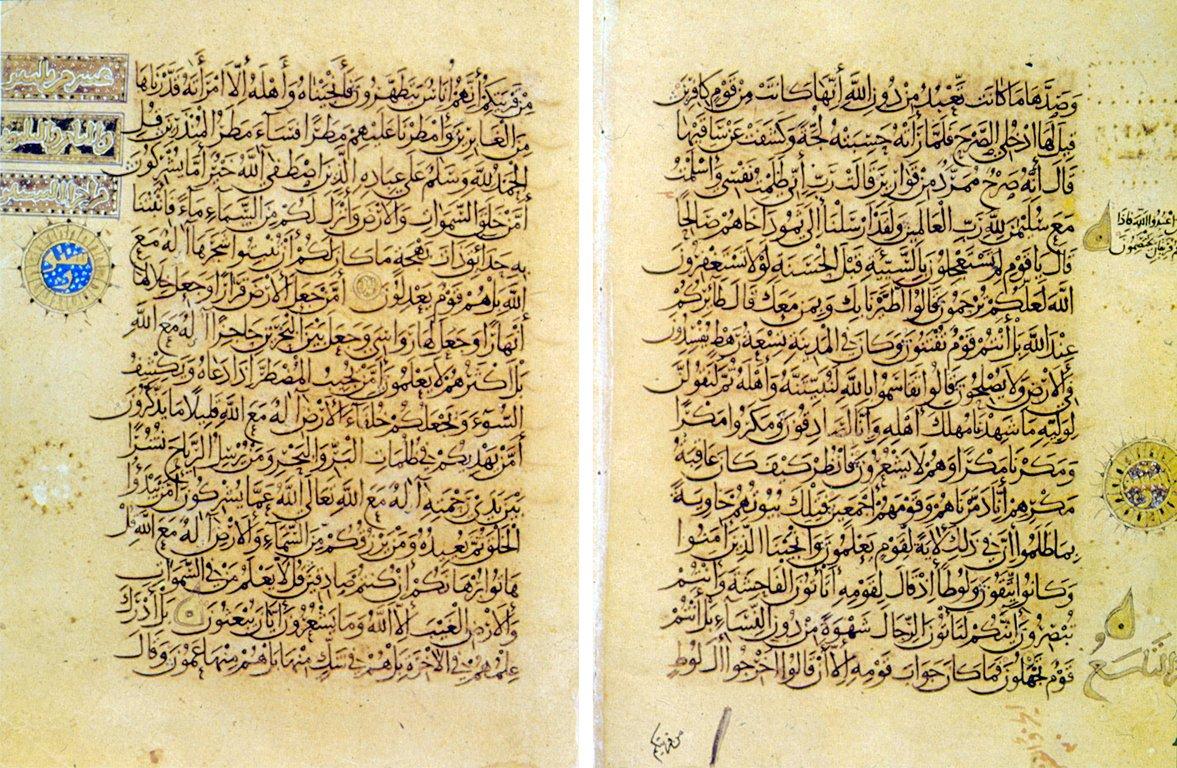 وَصَدَّهَا مَا كَانَت تَّعْبُدُ مِنْ دُونِ اللَّهِ إِنَّهَا كَانَتْ مِنْ قَوْمٍ كَافِرِينَ
قِيلَ لَهَا ادْخُلِي الصَّرْحَ فَلَمَّا رَأَتْهُ حَسِبَتْهُ لُجَّةً وَكَشَفَتْ عَنْ سَاقَيْهَا
قَالَ إِنَّهُ صَرْحٌ مُمَرَّدٌ مِنْ قَوَارِيرَ قَالَتْ رَبِّ إِنِّي ظَلَمْتُ نَفْسِي وَأَسْلَمْتُ
مَعَ سُلَيْمٰنَ لِلَّهِ رَبِّ الْعَالَمِينَ وَلَقَدْ أَرْسَلْنَا إِلَى ثَمُودَ أَخَاهُمْ صَالِحًا
اعبدوا الله فاذا
فريقان يختصمون
قَالَ يَا قَوْمِ لِمَ تَسْتَعْجِلُونَ بِالسَّيِّئَةِ قَبْلَ الْحَسَنَةِ لَوْلَا تَسْتَغْفِرُونَ
اللَّهَ لَعَلَّكُمْ تُرْحَمُونَ قَالُوا اطَّيَّرْنَا بِكَ وَبِمَنْ مَعَكَ قَالَ طَائِرُكُمْ
عِنْدَ اللَّهِ بَلْ أَنْتُمْ قَوْمٌ تُفْتَنُونَ وَكَانَ فِي الْمَدِينَةِ تِسْعَةُ رَهْطٍ يُفْسِدُونَ
فِي الْأَرْضِ وَلَا يُصْلِحُونَ قَالُوا تَقَاسَمُوا بِاللَّهِ لَنُبَيِّتَنَّهُ وَأَهْلَهُ ثُمَّ لَنَقُولَنَّ
لِوَلِيِّهِ مَا شَهِدْنَا مَهْلِكَ أَهْلِهِ وَإِنَّا لَصَادِقُونَ وَمَكَرُوا مَكْرًا
وَمَكَرْنَا مَكْرًا وَهُمْ لَا يَشْعُرُونَ فَانْظُرْ كَيْفَ كَانَ عَاقِبَةُ
مَكْرِهِمْ أَنَّا دَمَّرْنَاهُمْ وَقَوْمَهُمْ أَجْمَعِينَ فَتِلْكَ بُيُوتُهُمْ خَاوِيَةً
بِمَا ظَلَمُوا إِنَّ فِي ذَلِكَ لَآيَةً لِقَوْمٍ يَعْلَمُونَ وَأَنْجَيْنَا الَّذِينَ آمَنُوا
وَكَانُوا يَتَّقُونَ وَلُوطًا إِذْ قَالَ لِقَوْمِهِ أَتَأْتُونَ الْفَاحِشَةَ وَأَنْتُمْ
تُبْصِرُونَ أَئِنَّكُمْ لَتَأْتُونَ الرِّجَالَ شَهْوَةً مِنْ دُونِ النِّسَاءِ بَلْ أَنْتُمْ
قَوْمٌ تَجْهَلُونَ فَمَا كَانَ جَوَابَ قَوْمِهِ إِلَّا أَنْ قَالُوا أَخْرِجُوا آلَ لُوطٍ
من قريتكم
مِنْ قَرْيَتِكُمْ إِنَّهُمْ أُنَاسٌ يَتَطَهَّرُونَ فَأَنْجَيْنَاهُ وَأَهْلَهُ إِلَّا امْرَأَتَهُ قَدَّرْنَاهَا
مِنَ الْغَابِرِينَ وَأَمْطَرْنَا عَلَيْهِمْ مَطَرًا فَسَاءَ مَطَرُ الْمُنْذَرِينَ قُلِ
الْحَمْدُ لِلَّهِ وَسَلَامٌ عَلَى عِبَادِهِ الَّذِينَ اصْطَفَى آللَّهُ خَيْرٌ أَمَّا يُشْرِكُونَ
أَمَّنْ خَلَقَ السَّمٰوَاتِ وَالْأَرْضَ وَأَنْزَلَ لَكُمْ مِنَ السَّمَاءِ مَاءً فَأَنْبَتْنَا
بِهِ حَدَائِقَ ذَاتَ بَهْجَةٍ مَا كَانَ لَكُمْ أَنْ تُنْبِتُوا شَجَرَهَا أَإِلَهٌ مَعَ
اللَّهِ بَلْ هُمْ قَوْمٌ يَعْدِلُونَ أَمَّنْ جَعَلَ الْأَرْضَ قَرَارًا وَجَعَلَ خِلَالَهَا
أَنْهَارًا وَجَعَلَ لَهَا رَوَاسِيَ وَجَعَلَ بَيْنَ الْبَحْرَيْنِ حَاجِزًا أَإِلَهٌ مَعَ اللَّهِ
بَلْ أَكْثَرُهُمْ لَا يَعْلَمُونَ أَمَّنْ يُجِيبُ الْمُضْطَرَّ إِذَا دَعَاهُ وَيَكْشِفُ
السُّوءَ وَيَجْعَلُكُمْ خُلَفَاءَ الْأَرْضِ أَإِلَهٌ مَعَ اللَّهِ قَلِيلًا مَا يَذَّكَّرُونَ
أَمَّنْ يَهْدِيكُمْ فِي ظُلُمَاتِ الْبَرِّ وَالْبَحْرِ وَمَنْ يُرْسِلُ الرِّيَاحَ نُشُرًا
بَيْنَ يَدَيْ رَحْمَتِهِ أَإِلَهٌ مَعَ اللَّهِ تَعَالَى اللَّهُ عَمَّا يُشْرِكُونَ أَمَّنْ يَبْدَؤُا
الْخَلْقَ ثُمَّ يُعِيدُهُ وَمَنْ يَرْزُقُكُمْ مِنَ السَّمَاءِ وَالْأَرْضِ أَإِلَهٌ مَعَ اللَّهِ قُلْ
هَاتُوا بُرْهَانَكُمْ إِنْ كُنْتُمْ صَادِقِينَ قُلْ لَا يَعْلَمُ مَنْ فِي السَّمٰوَاتِ
وَالْأَرْضِ الْغَيْبَ إِلَّا اللَّهُ وَمَا يَشْعُرُونَ أَيَّانَ يُبْعَثُونَ بَلْ أَدْرَكَ
عِلْمُهُمْ فِي الْآخِرَةِ بَلْ هُمْ فِي شَكٍّ مِنْهَا بَلْ هُمْ مِنْهَا عَمُونَ وَقَالَ